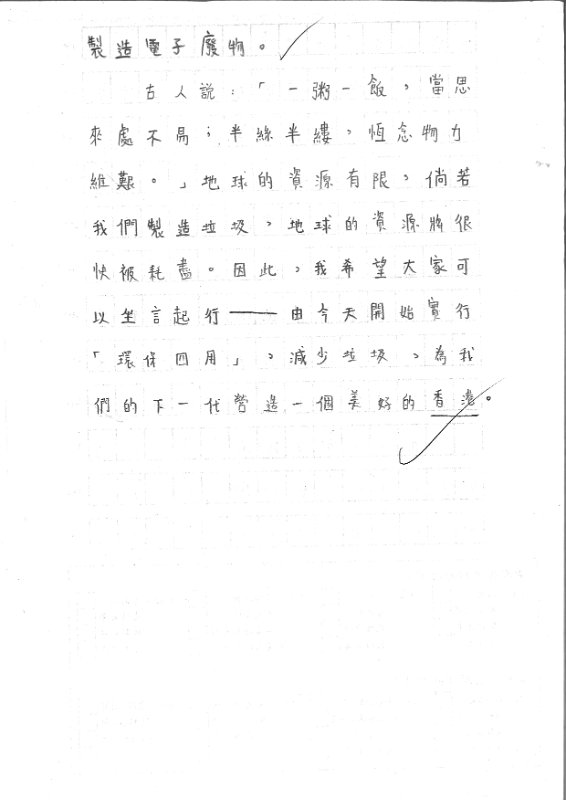 製造電子廢物。
古人說：「一粥一飯，當思
來處不易；半絲半縷，恆念物力
維艱。」地球的資源有限，倘若
我們製造垃圾，地球的資源將很
快被耗盡。因此，我希望大家可
以坐言起行——由今天開始實行
「環保四用」，減少垃圾，為我
們的下一代營造一個美好的香港。